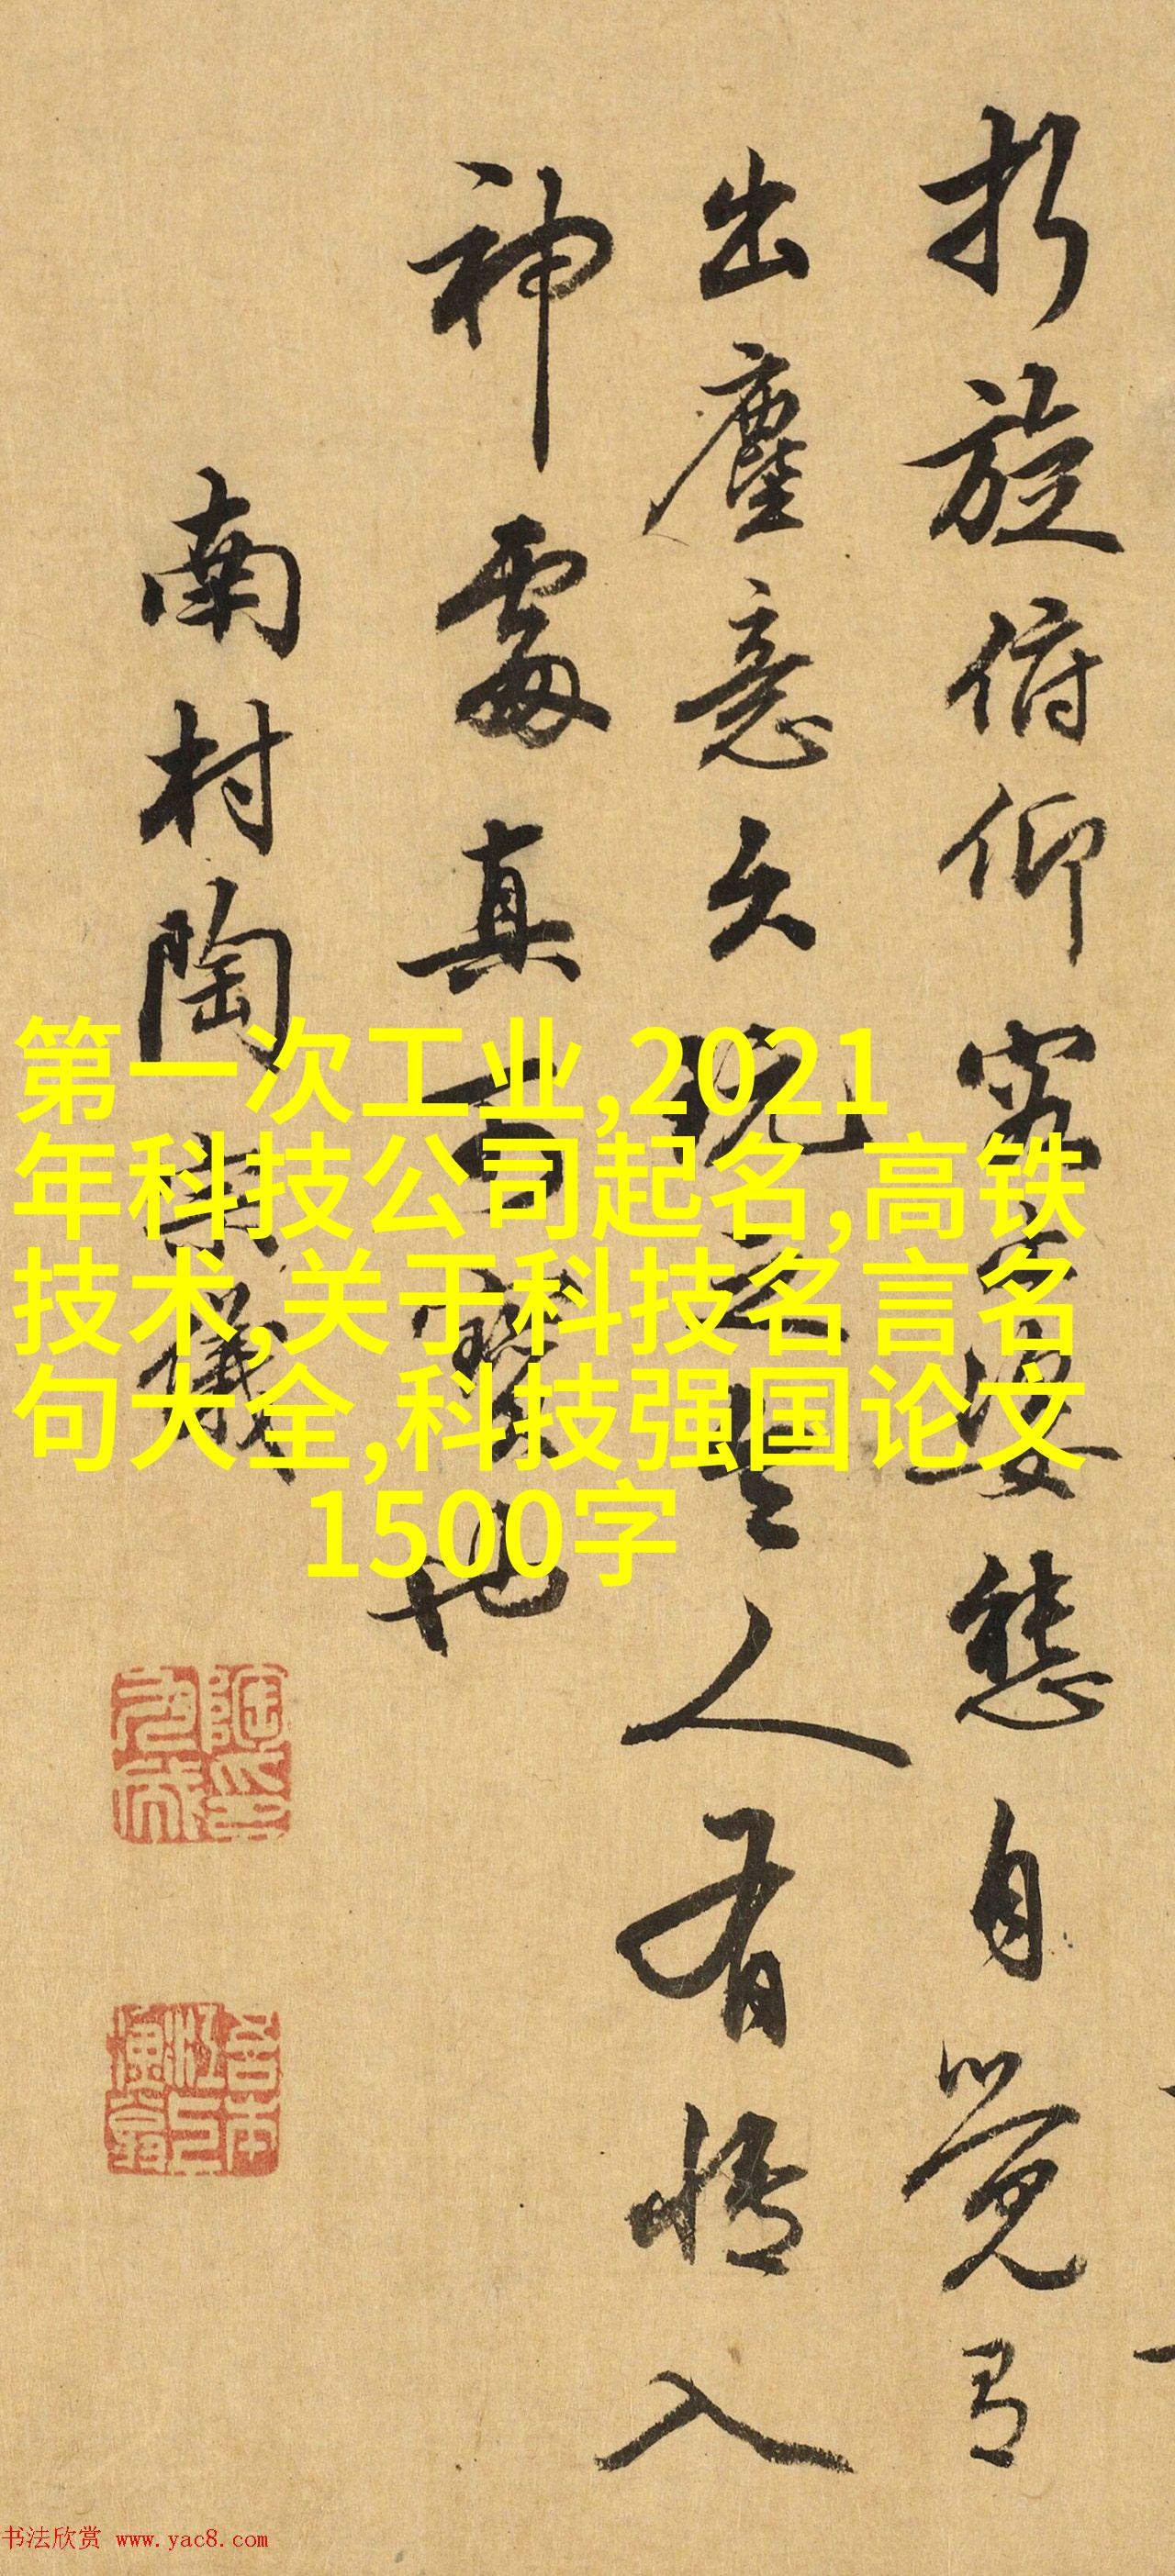 折旋俯仰容与婆態自覺有
出塵意久玩之是人有情入
神處真可寶也
南村陶宗儀
第一次工业,2021
年科技公司起名,高铁
技术,关于科技名言名
句大全,科技强国论文
1500字
书法欣赏 www.yac8.com